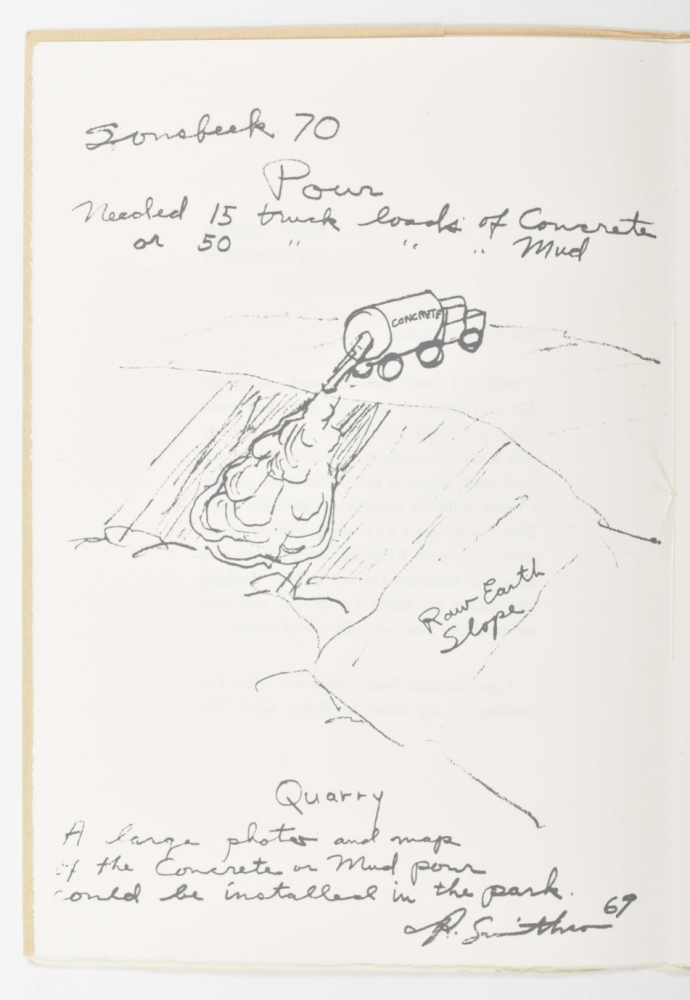 Sonsbeek 70
Pour
Needed 15 truck loads of Concrete
or 50 " " " Mud
CONCRETE
Raw Earth
Slope
Quarry
A large photo and map
of the Concrete or Mud pour
could be installed in the park.
R. Smithson 69